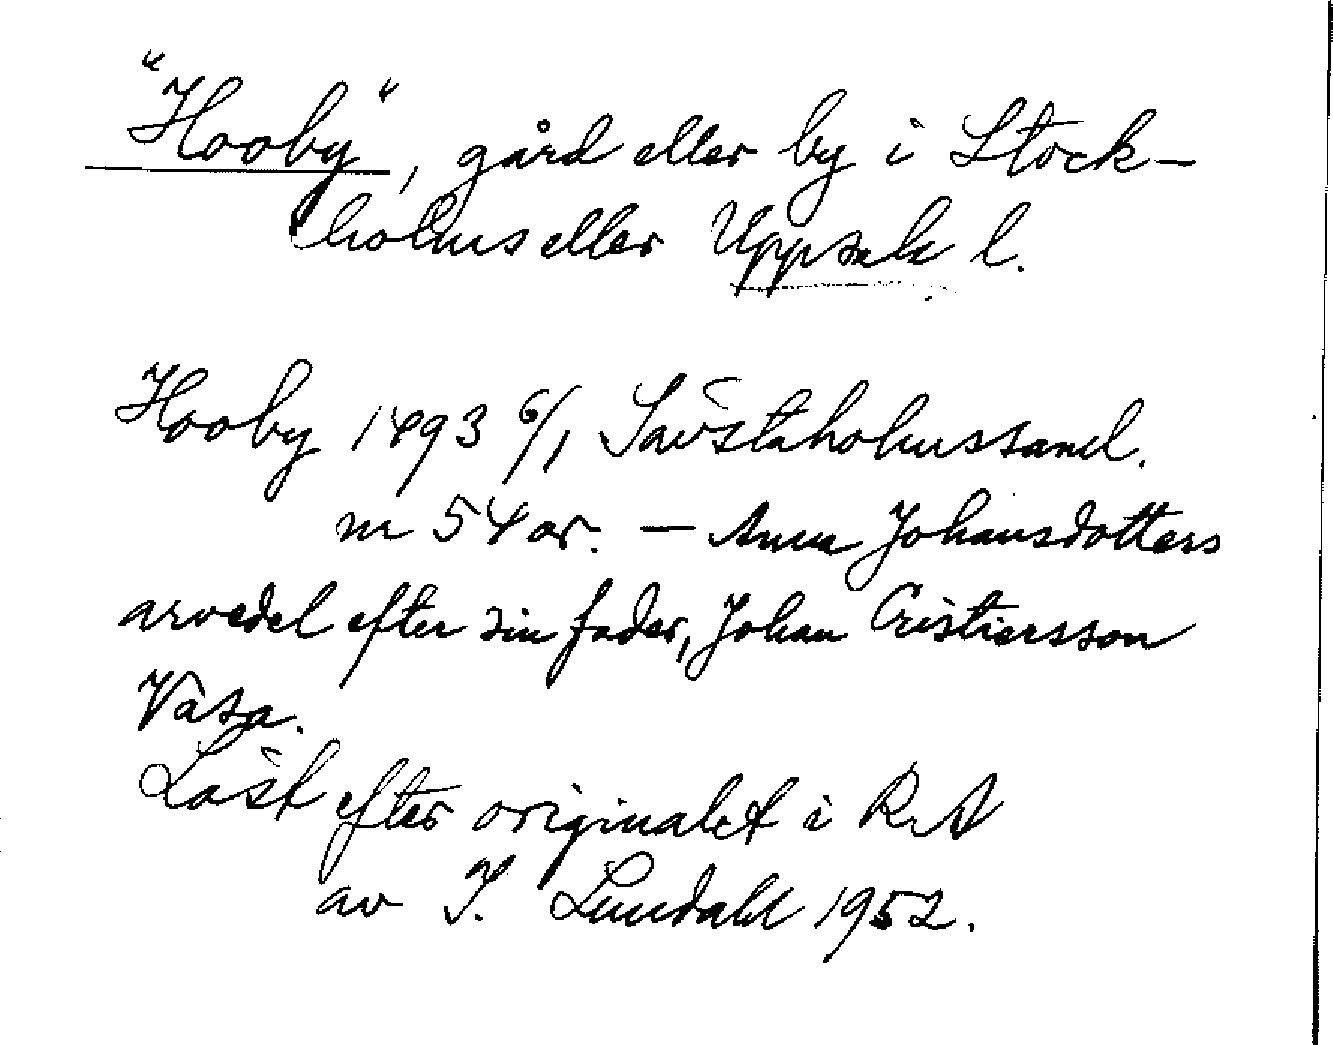 "Hooby", gård eller by i Stock-
holms eller Uppsala l.
Hooby 1493 6/1 Sävstaholmssaml.
nr 54 or. — Anna Johansdotters
arvedel efter sin fader, Johan Cristiersson
Vasa.
Läst efter originalet i RA
av I. Lundahl 1952.